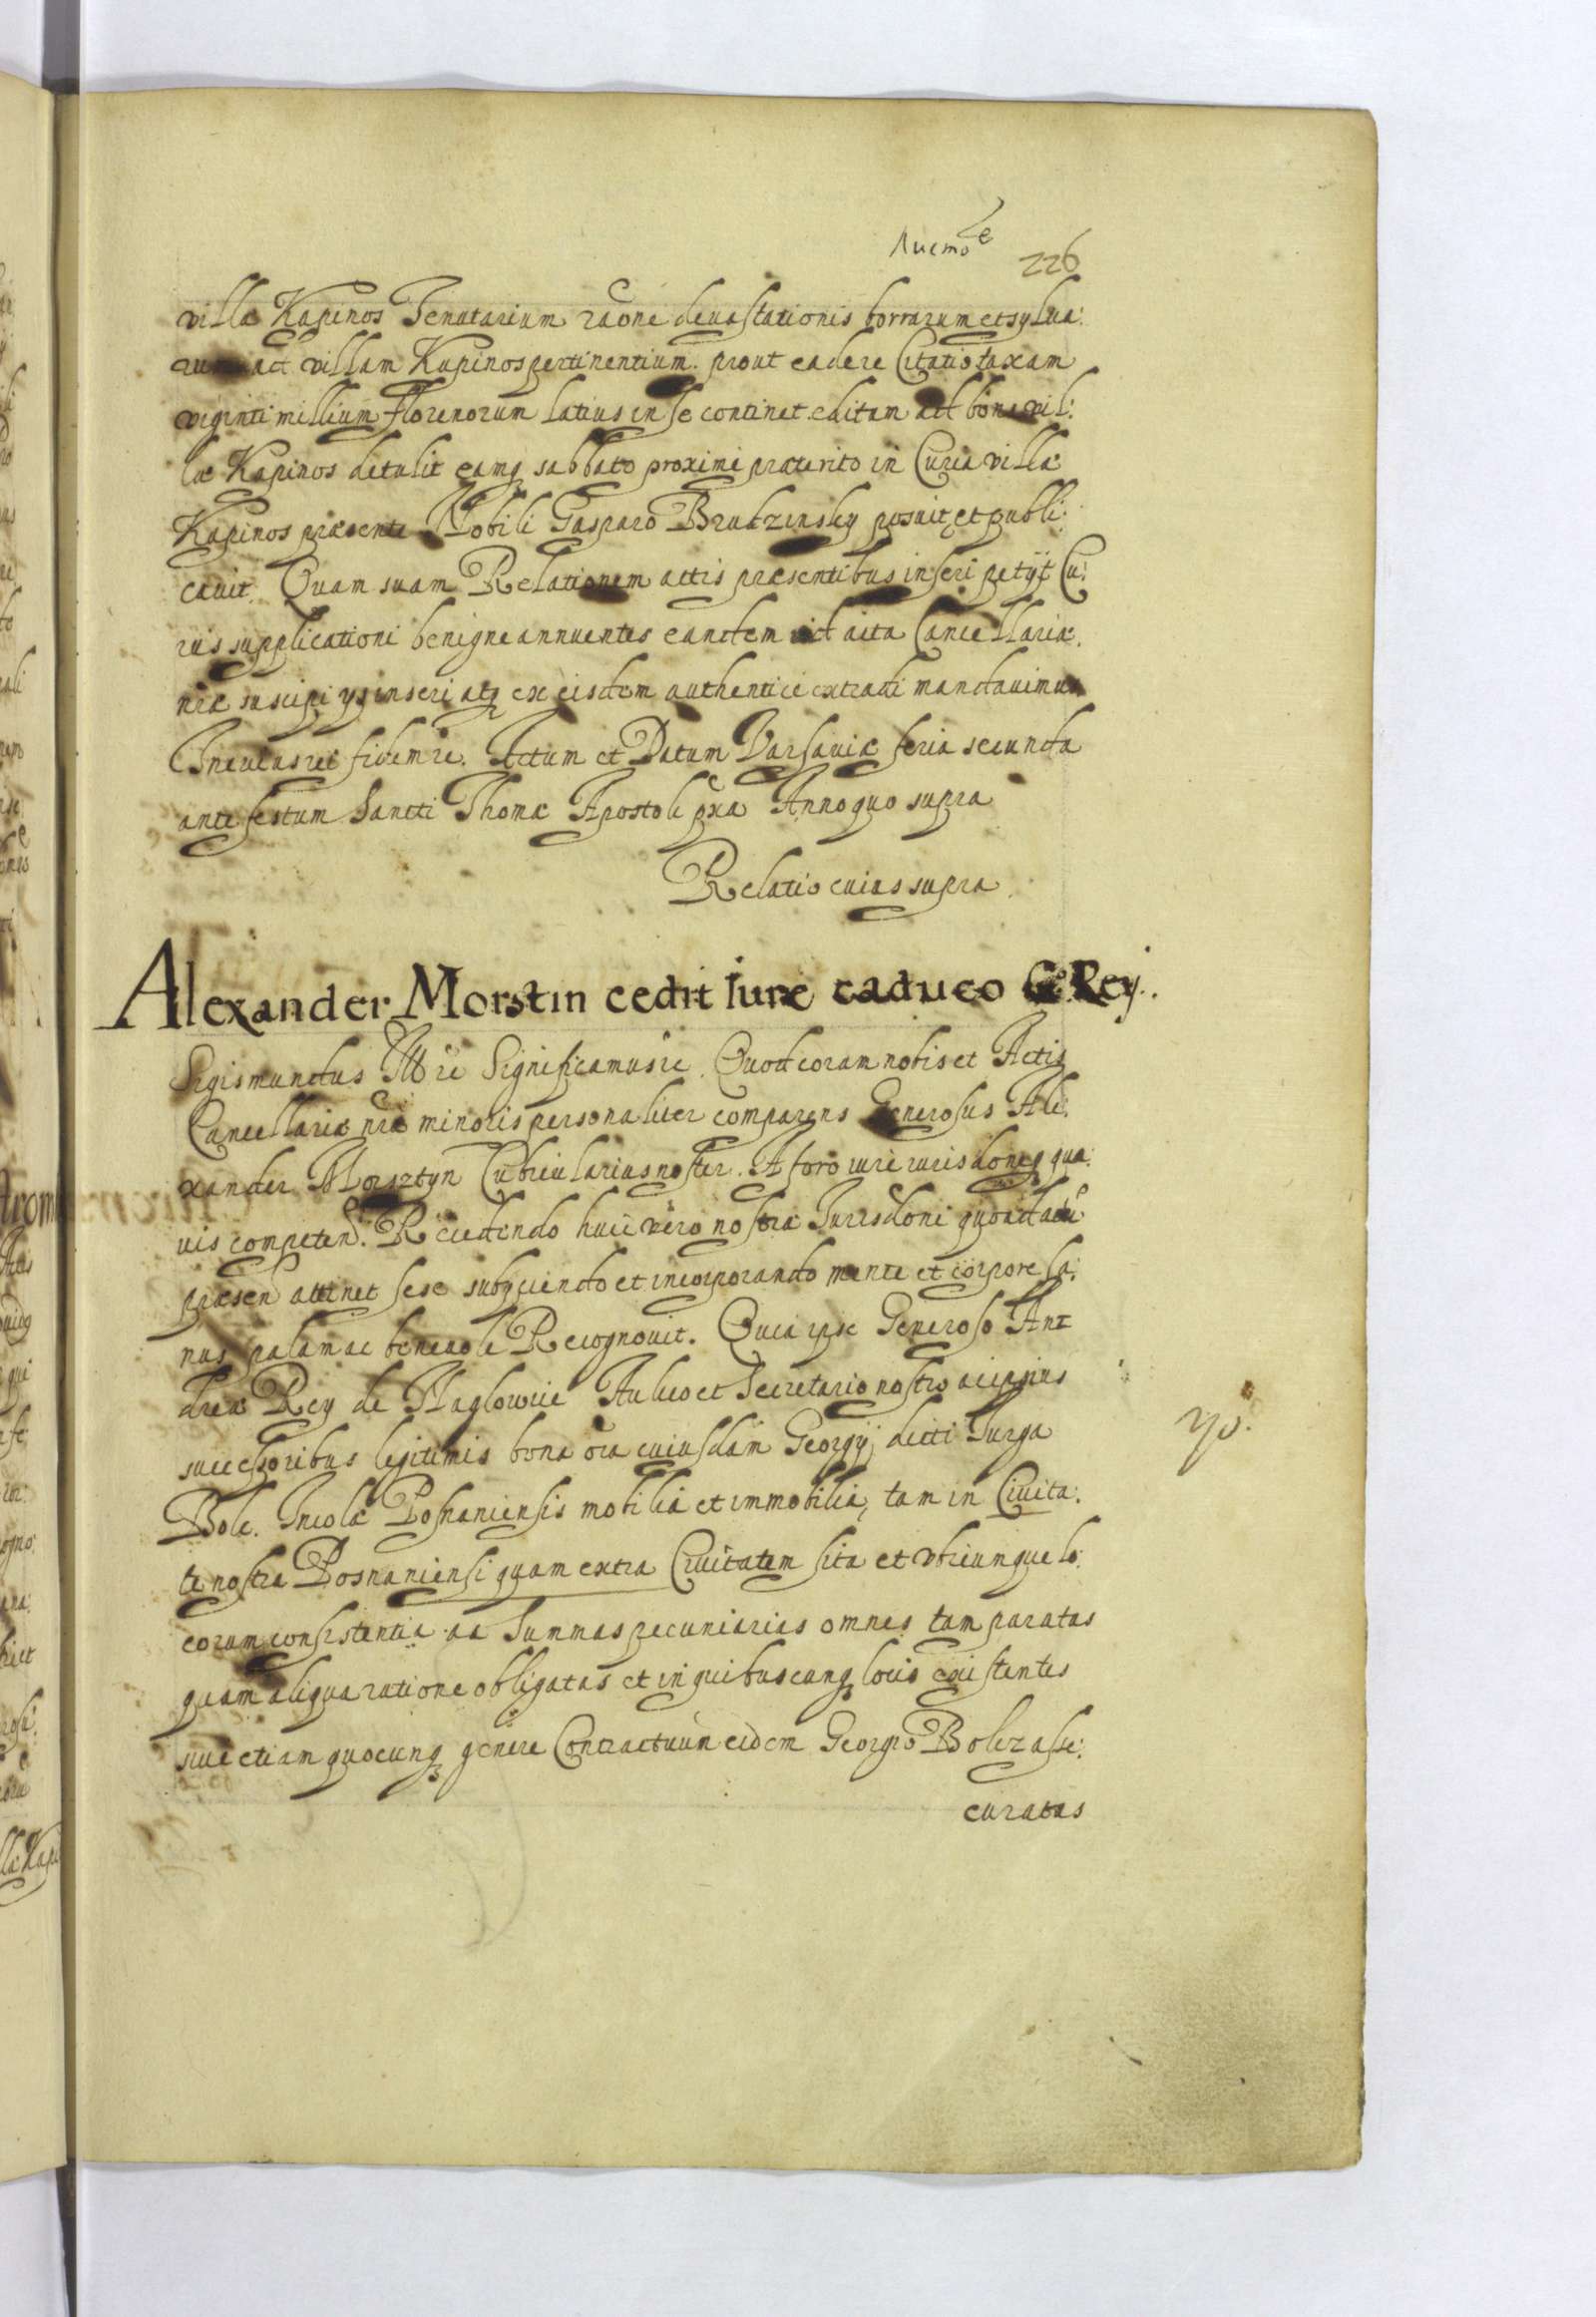 Листов 226
villæ Kapinos Tenutarium rãone deuastationis borrarum et sylua:
rum ad villam Kapinos pertinentium. prout ea de re Citatio taxam
viginti millium florenorum latius in se continet editam ad bona vil:
læ Kapinos detulit eamq sabbato proxime præterito in Curia villæ
Kapinos præsente Nobili Gasparo Brudzinsky posuit et publi:
cauit. Quam suam Relationem actis præsentibus inseri petyt Cu:
ius supplicationi benigne annuentes eandem ad acta Cancellariæ.
nræ suscipi ysq inseri atq ex eisdem authentice extradi mandauimus
In cuius rei fidem re. Actum et Datum Varsauiæ feria secunda
ante festum Sancti Thomæ Apostoli pxa Anno quo supra
Relatio cuius supra.
Alexander Morstin cedit Iure caduco G. Rey.
Sigismundus III re Significamus re. Quod coram nobis et Actis
Cancellariæ nræ minoris personaliter comparens Generosus Ale:
xander Morsztyn Cubicularius noster. A foro iure iurisdoneq qua:
uis competen. Recedendo huic vero nostræ Jurisdoni quoad actũ
præsen attinet sese subyciendo et incorporando mente et corpore sa:
nus palam ac beneuole Recognouit. Quia ipse Generoso An:
dreæ Rey de Naglowice Aulico et Secretario nostro ac ipsius
successoribus legitimis bona oia cuiusdam Georgij dicti Jurga
Bole. Incolæ Posnaniensis mobilia et immobilia, tam in Ciuita:
te nostra Posnaniensi quam extra Ciuitatem sita et vbicunque lo:
corum consistentia ac Summas pecuniarias omnes tam paratas
quam aliqua ratione obligatas et in quibuscunq locis existentes
siue etiam quocunq genere Contractuum eidem Georgio Bolcz asse:
curatas